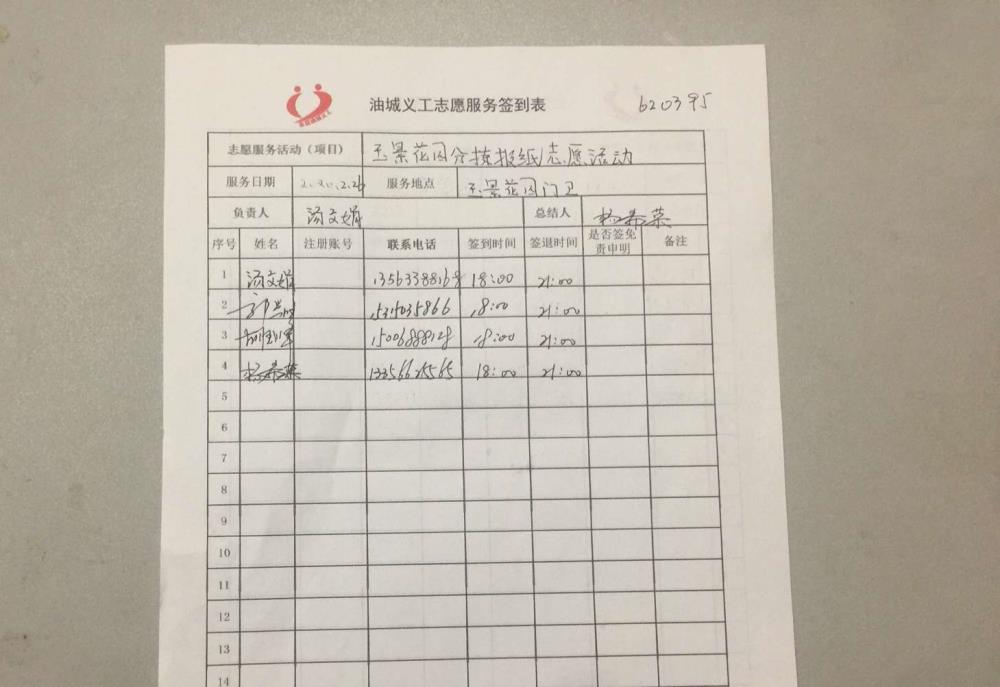 油城义工志愿服务签到表 620395
志愿服务活动（项目） 玉景花园分拣报纸志愿活动
服务日期 2020.2.26 服务地点 玉景花园门卫
负责人 汤文娟 总结人 杨希荣
序号 姓名 注册账号 联系电话 签到时间 签退时间 是否签免责申明 备注
1 汤文娟 18:00 21:00
2 18:00 21:00
3 18:00 21:00
4 杨希荣 13356625565 18:00 21:00
5
6
7
8
9
10
11
12
13
14